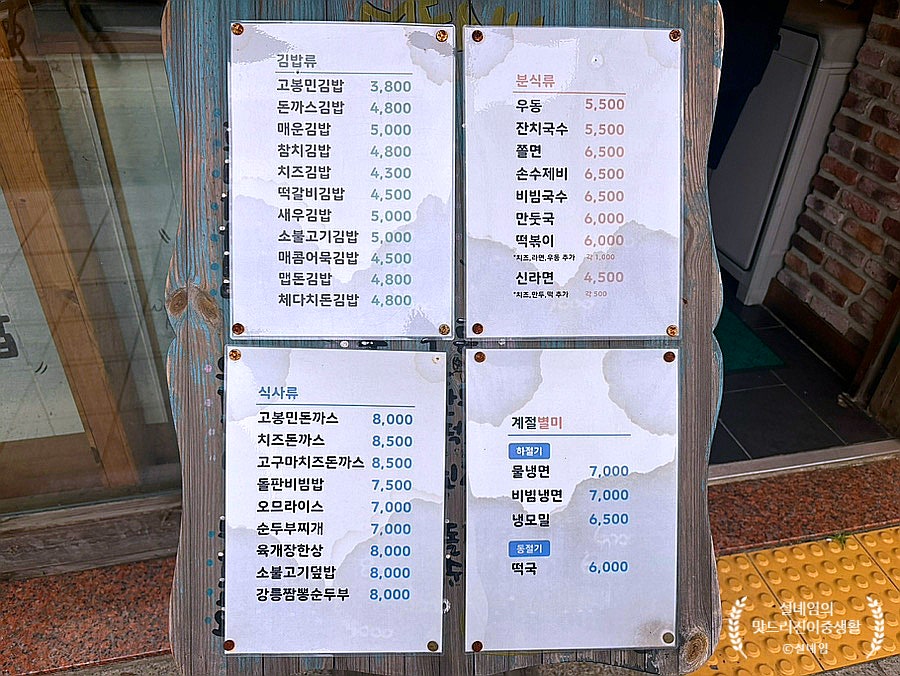 김밥류
고봉민김밥 3,800
돈까스김밥 4,800
매운김밥 5,000
참치김밥 4,800
치즈김밥 4,300
떡갈비김밥 4,500
새우김밥 5,000
소불고기김밥 5,000
매콤어묵김밥 4,500
맵돈김밥 4,800
체다치돈김밥 4,800
분식류
우동 5,500
잔치국수 5,500
쫄면 6,500
손수제비 6,500
비빔국수 6,500
만둣국 6,000
떡볶이 6,000
*치즈,라면,우동 추가 각 1,000
신라면 4,500
*치즈,만두,떡 추가 각 500
식사류
고봉민돈까스 8,000
치즈돈까스 8,500
고구마치즈돈까스 8,500
돌판비빔밥 7,500
오므라이스 7,000
순두부찌개 7,000
육개장한상 8,000
소불고기덮밥 8,000
강릉짬뽕순두부 8,000
계절별미
하절기
물냉면 7,000
비빔냉면 7,000
냉모밀 6,500
동절기
떡국 6,000
설네임의
맛드러진이중생활
©설네임